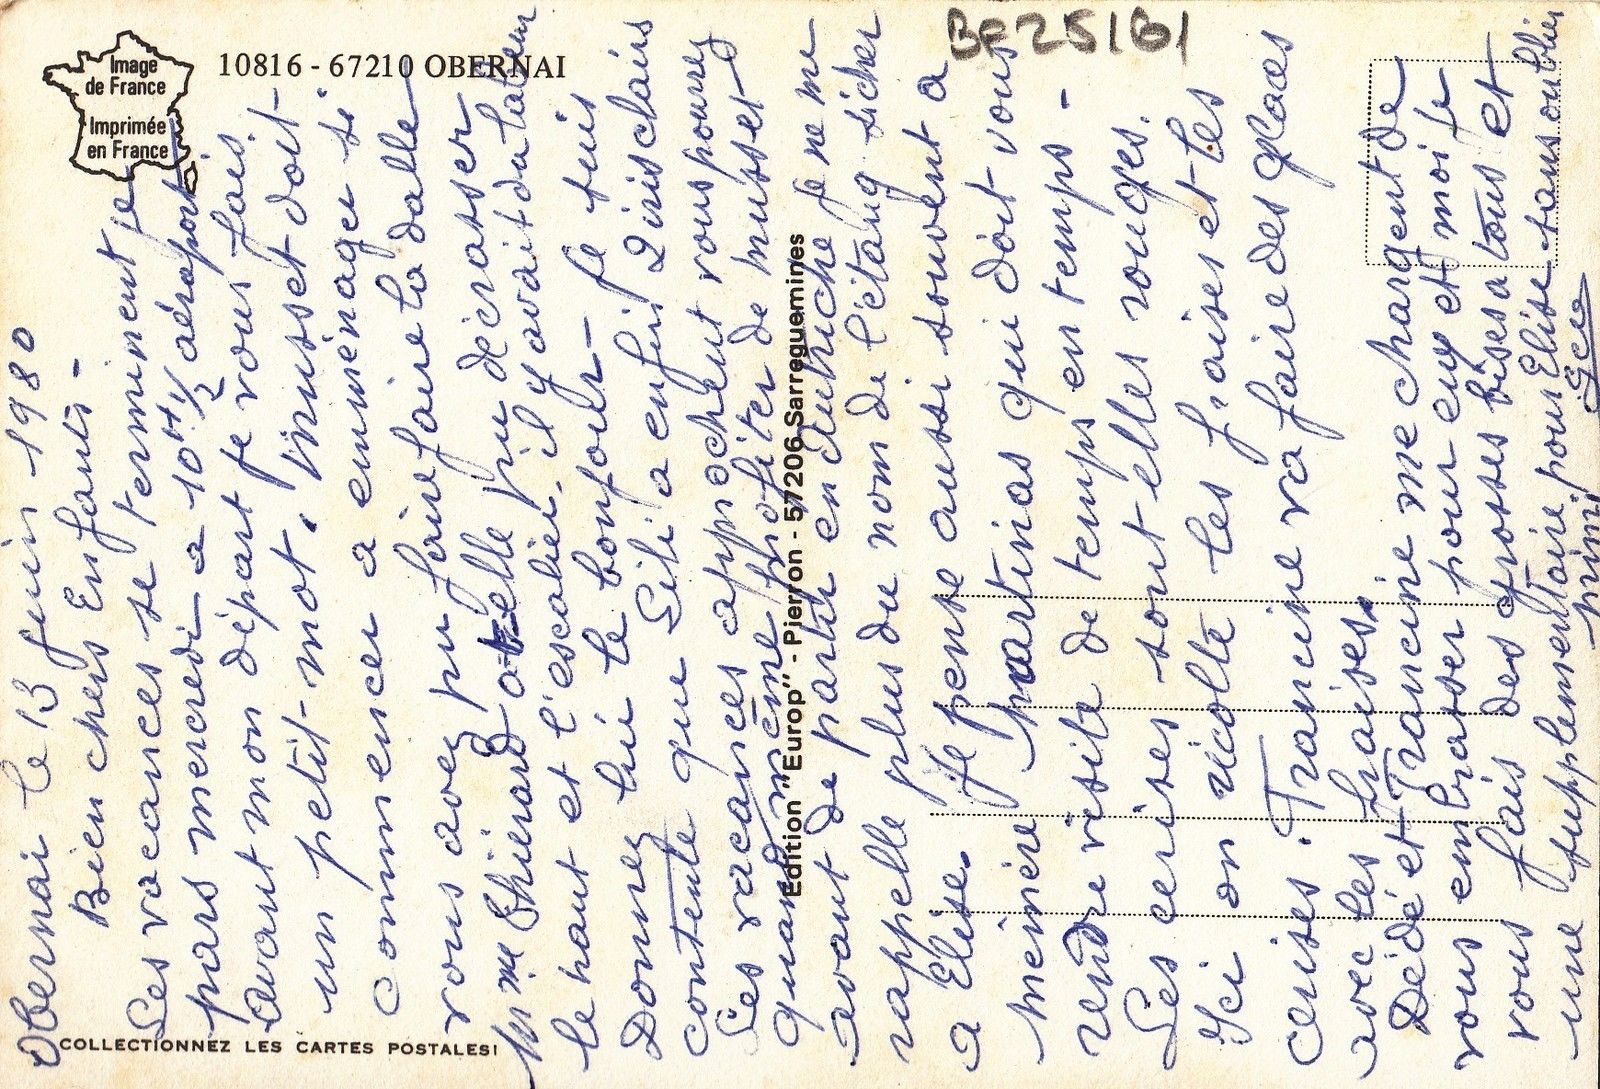 BF25181
Image
de France
Imprimée
en France
10816 - 67210 OBERNAI
Edition "Europ" - Pierron - 57206 Sarreguemines
COLLECTIONNEZ LES CARTES POSTALES!
Obernai le 13 juin 1980
Bien chers Enfants -
Les vacances se terminent je
pars mercredi a 10H 1/2 aéroport
avant mon départ je vous fais
un petit-mot. Musset doit
commencer a emménager si
vous avez pu faire faire la dalle
Mme Thierard a elle pu décrasser
le haut et l'escalier, il y avait du
Donnez lui le bonjour - je suis
contente que Lili a enfin
Les vacances approchent vous pourrez
quand même profiter de musset
avant de partir en Autriche je ne me
rappelle plus du nom de l'étang
a Elise. Je pense aussi souvent a
mémère Martinas qui doit vous
rendre visite de temps en temps -
Les cerises sont elles rouges.
Ici on récolte les fraises et les
cerises. Francine va faire des glaces
avec les fraises.
Dédé et Francine me chargent de
vous embrasser pour eux et moi je
vous fais des grosses bises a tous et
une supplémentaire pour Elise sans oublier
mimi